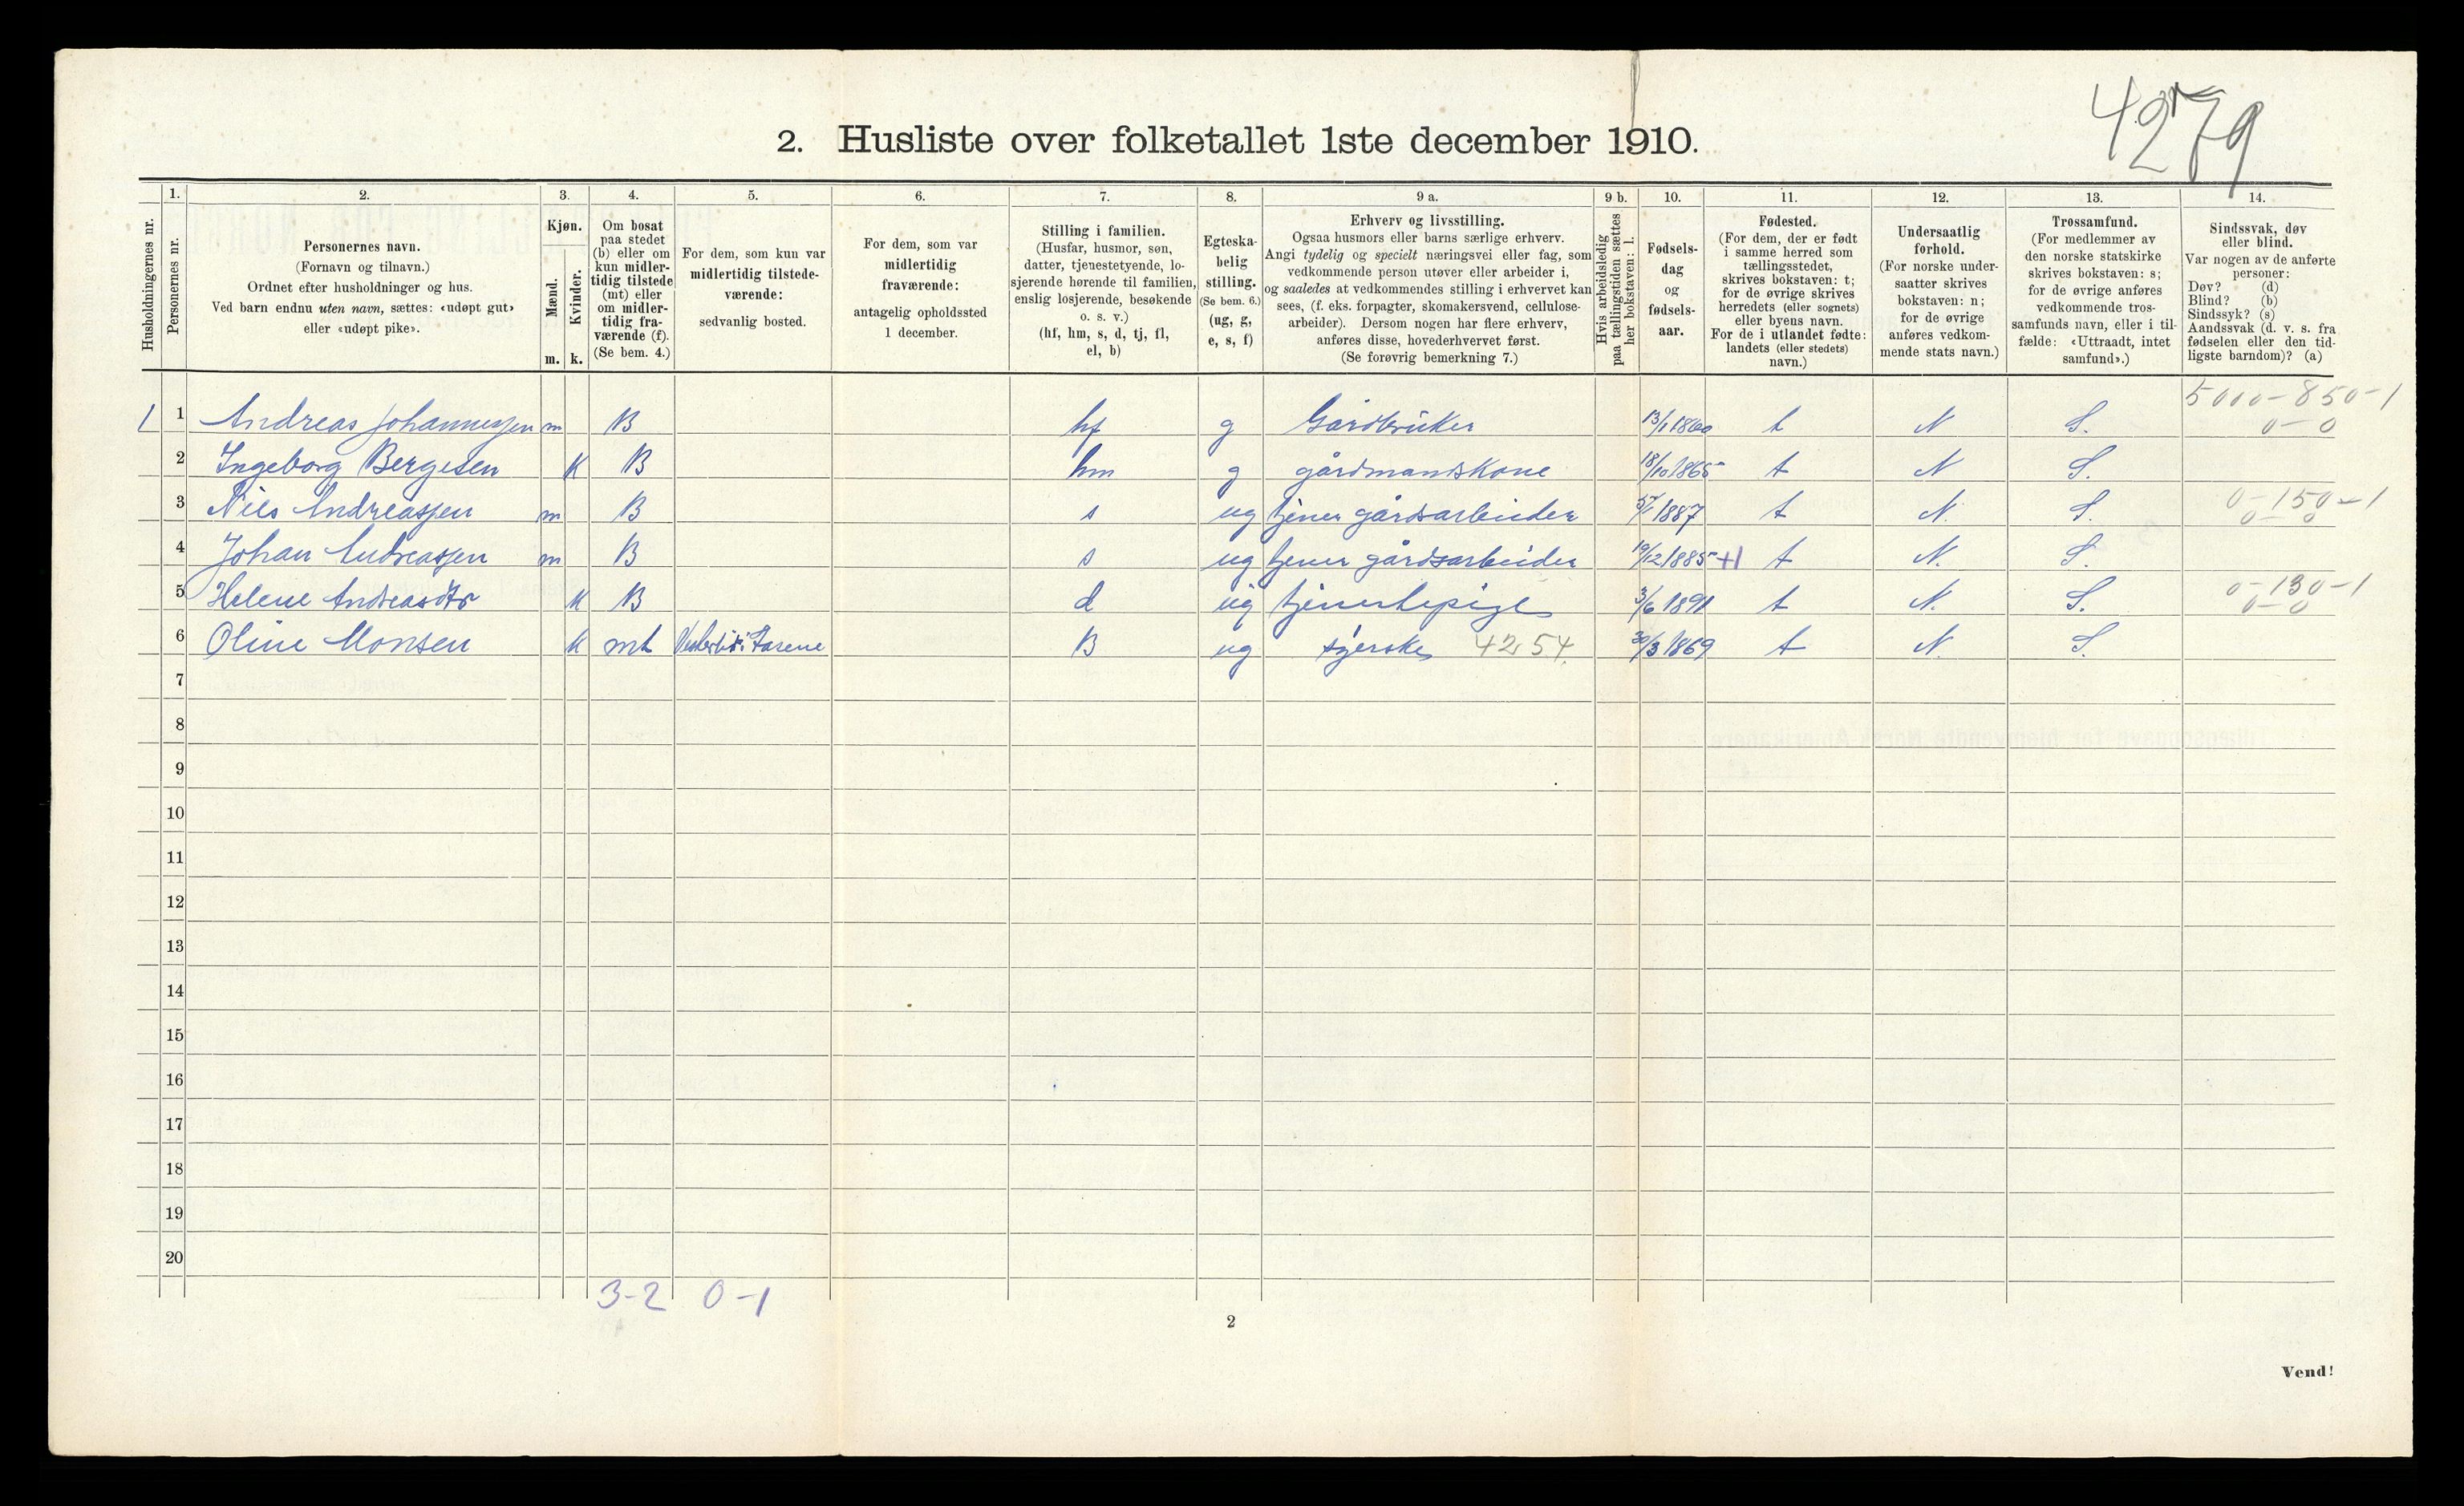 4279
2. Husliste over folketallet 1ste december 1910.
Husholdningernes nr.
1.
Personernes nr.
2.
Personernes navn.
(Fornavn og tilnavn.)
Ordnet efter husholdninger og hus.
Ved barn endnu uten navn, sættes: «udøpt gut»
eller «udøpt pike».
3.
Kjøn.
Mænd.
Kvinder.
m. k.
4.
Om bosat
paa stedet
(b) eller om
kun midler-
tidig tilstede
(mt) eller
om midler-
tidig fra-
værende (f).
(Se bem. 4.)
5.
For dem, som kun var
midlertidig tilstede-
værende:
sedvanlig bosted.
6.
For dem, som var
midlertidig
fraværende:
antagelig opholdssted
1 december.
7.
Stilling i familien.
(Husfar, husmor, søn,
datter, tjenestetyende, lo-
sjerende hørende til familien,
enslig losjerende, besøkende
o. s. v.)
(hf, hm, s, d, tj, fl,
el, b)
8.
Egteska-
belig
stilling.
(Se bem. 6.)
(ug, g,
e, s, f)
9 a.
Erhverv og livsstilling.
Ogsaa husmors eller barns særlige erhverv.
Angi tydelig og specielt næringsvei eller fag, som
vedkommende person utøver eller arbeider i,
og saaledes at vedkommendes stilling i erhvervet kan
sees, (f. eks. forpagter, skomakersvend, cellulose-
arbeider). Dersom nogen har flere erhverv,
anføres disse, hovederhvervet først.
(Se forøvrig bemerkning 7.)
9 b.
Hvis arbeidsledig
paa tællingstiden sættes
her bokstaven: l.
10.
Fødsels-
dag
og
fødsels-
aar.
11.
Fødested.
(For dem, der er født
i samme herred som
tællingsstedet,
skrives bokstaven: t;
for de øvrige skrives
herredets (eller sognets)
eller byens navn.
For de i utlandet fødte:
landets (eller stedets)
navn.)
12.
Undersaatlig
forhold.
(For norske under-
saatter skrives
bokstaven: n;
for de øvrige
anføres vedkom-
mende stats navn.)
13.
Trossamfund.
(For medlemmer av
den norske statskirke
skrives bokstaven: s;
for de øvrige anføres
vedkommende tros-
samfunds navn, eller i til-
fælde: «Uttraadt, intet
samfund».)
14.
Sindssvak, døv
eller blind.
Var nogen av de anførte
personer:
Døv? (d)
Blind? (b)
Sindssyk? (s)
Aandssvak (d. v. s. fra
fødselen eller den tid-
ligste barndom)? (a)
5000-850-1
1 1 Andreas Johannessen m B hf g Gårdbruker 13/1 1860 t N S. 0-0
2 Ingeborg Bergesen K B hm g gårdmandskone 18/10 1865 t N S.
3 Nils Andreassen m B s ug tjener gårdsarbeider 1887 t N. S. 0-150-1
0-0
4 Johan Andreassen m B s ug tjener gårdsarbeider 19/12 1885 +1 t N. S.
5 Helene Andreasdtr K B d ug tjenestepige 3/6 1891 t N. S. 0-130-1
0-0
6 Oline Monsen K mt B ug syerske 4254. 30/3 1869 t N. S.
7
8
9
10
11
12
13
14
15
16
17
18
19
20
3-2 0-1
2
Vend!